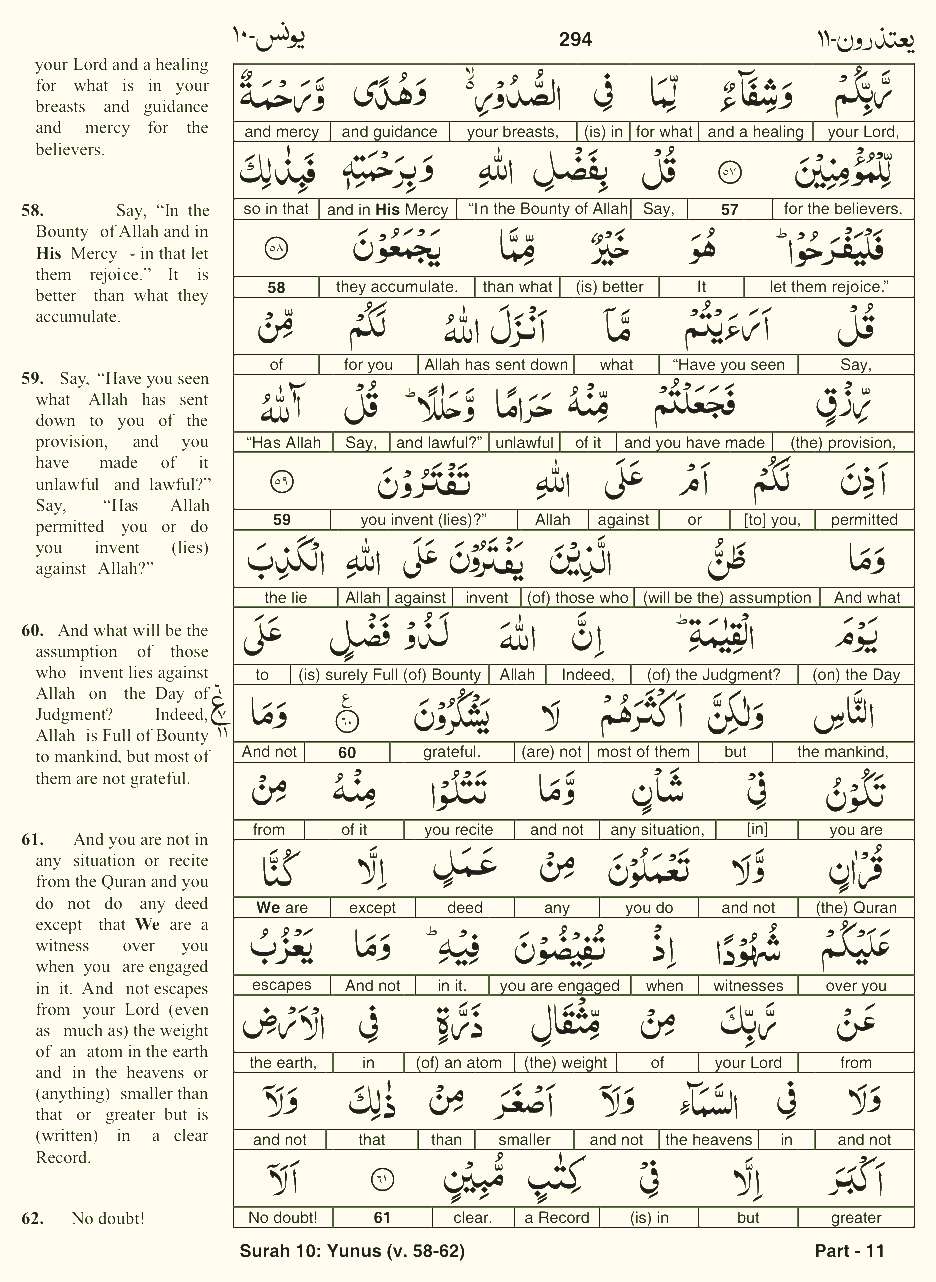 يعتذرون-١١ 294 يونس-١٠
your Lord and a healing
for what is in your
breasts and guidance
and mercy for the
believers.
58. Say, “In the
Bounty of Allah and in
His Mercy - in that let
them rejoice.” It is
better than what they
accumulate.
59. Say, “Have you seen
what Allah has sent
down to you of the
provision, and you
have made of it
unlawful and lawful?”
Say, “Has Allah
permitted you or do
you invent (lies)
against Allah?”
60. And what will be the
assumption of those
who invent lies against
Allah on the Day of
Judgment? Indeed,
Allah is Full of Bounty
to mankind, but most of
them are not grateful.
61. And you are not in
any situation or recite
from the Quran and you
do not do any deed
except that We are a
witness over you
when you are engaged
in it. And not escapes
from your Lord (even
as much as) the weight
of an atom in the earth
and in the heavens or
(anything) smaller than
that or greater but is
(written) in a clear
Record.
62. No doubt!
رَّبِّكُمْ وَشِفَآءٌ لِّمَا فِي الصُّدُوْرِ ۙ وَهُدًى وَّرَحْمَةٌ
and mercy and guidance your breasts, (is) in for what and a healing your Lord,
لِّلْمُؤْمِنِيْنَ ٥٧ قُلْ بِفَضْلِ اللّٰهِ وَبِرَحْمَتِهٖ فَبِذٰلِكَ
so in that and in His Mercy “In the Bounty of Allah Say, 57 for the believers.
فَلْيَفْرَحُوْا ؕ هُوَ خَيْرٌ مِّمَّا يَجْمَعُوْنَ ٥٨
58 they accumulate. than what (is) better It let them rejoice.”
قُلْ اَرَءَيْتُمْ مَّآ اَنْزَلَ اللّٰهُ لَكُمْ مِّنْ
of for you Allah has sent down what “Have you seen Say,
رِّزْقٍ فَجَعَلْتُمْ مِّنْهُ حَرَامًا وَّحَلٰلًا ؕ قُلْ آٰللّٰهُ
“Has Allah Say, and lawful?” unlawful of it and you have made (the) provision,
اَذِنَ لَكُمْ اَمْ عَلَى اللّٰهِ تَفْتَرُوْنَ ٥٩
59 you invent (lies)?” Allah against or [to] you, permitted
وَمَا ظَنُّ الَّذِيْنَ يَفْتَرُوْنَ عَلَى اللّٰهِ الْكَذِبَ
the lie Allah against invent (of) those who (will be the) assumption And what
يَوْمَ الْقِيٰمَةِ ؕ اِنَّ اللّٰهَ لَذُوْ فَضْلٍ عَلَى
to (is) surely Full (of) Bounty Allah Indeed, (of) the Judgment? (on) the Day
النَّاسِ وَلٰكِنَّ اَكْثَرَهُمْ لَا يَشْكُرُوْنَ ٦٠ وَمَا
And not 60 grateful. (are) not most of them but the mankind,
تَكُوْنُ فِيْ شَاْنٍ وَّمَا تَتْلُوْا مِنْهُ مِنْ
from of it you recite and not any situation, [in] you are
قُرْاٰنٍ وَّلَا تَعْمَلُوْنَ مِنْ عَمَلٍ اِلَّا كُنَّا
We are except deed any you do and not (the) Quran
عَلَيْكُمْ شُهُوْدًا اِذْ تُفِيْضُوْنَ فِيْهِ ؕ وَمَا يَعْزُبُ
escapes And not in it. you are engaged when witnesses over you
عَنْ رَّبِّكَ مِنْ مِّثْقَالِ ذَرَّةٍ فِي الْاَرْضِ
the earth, in (of) an atom (the) weight of your Lord from
وَلَا فِي السَّمَآءِ وَلَآ اَصْغَرَ مِنْ ذٰلِكَ وَلَآ
and not that than smaller and not the heavens in and not
اَكْبَرَ اِلَّا فِيْ كِتٰبٍ مُّبِيْنٍ ٦١ اَلَآ
No doubt! 61 clear. a Record (is) in but greater
Surah 10: Yunus (v. 58-62) Part - 11